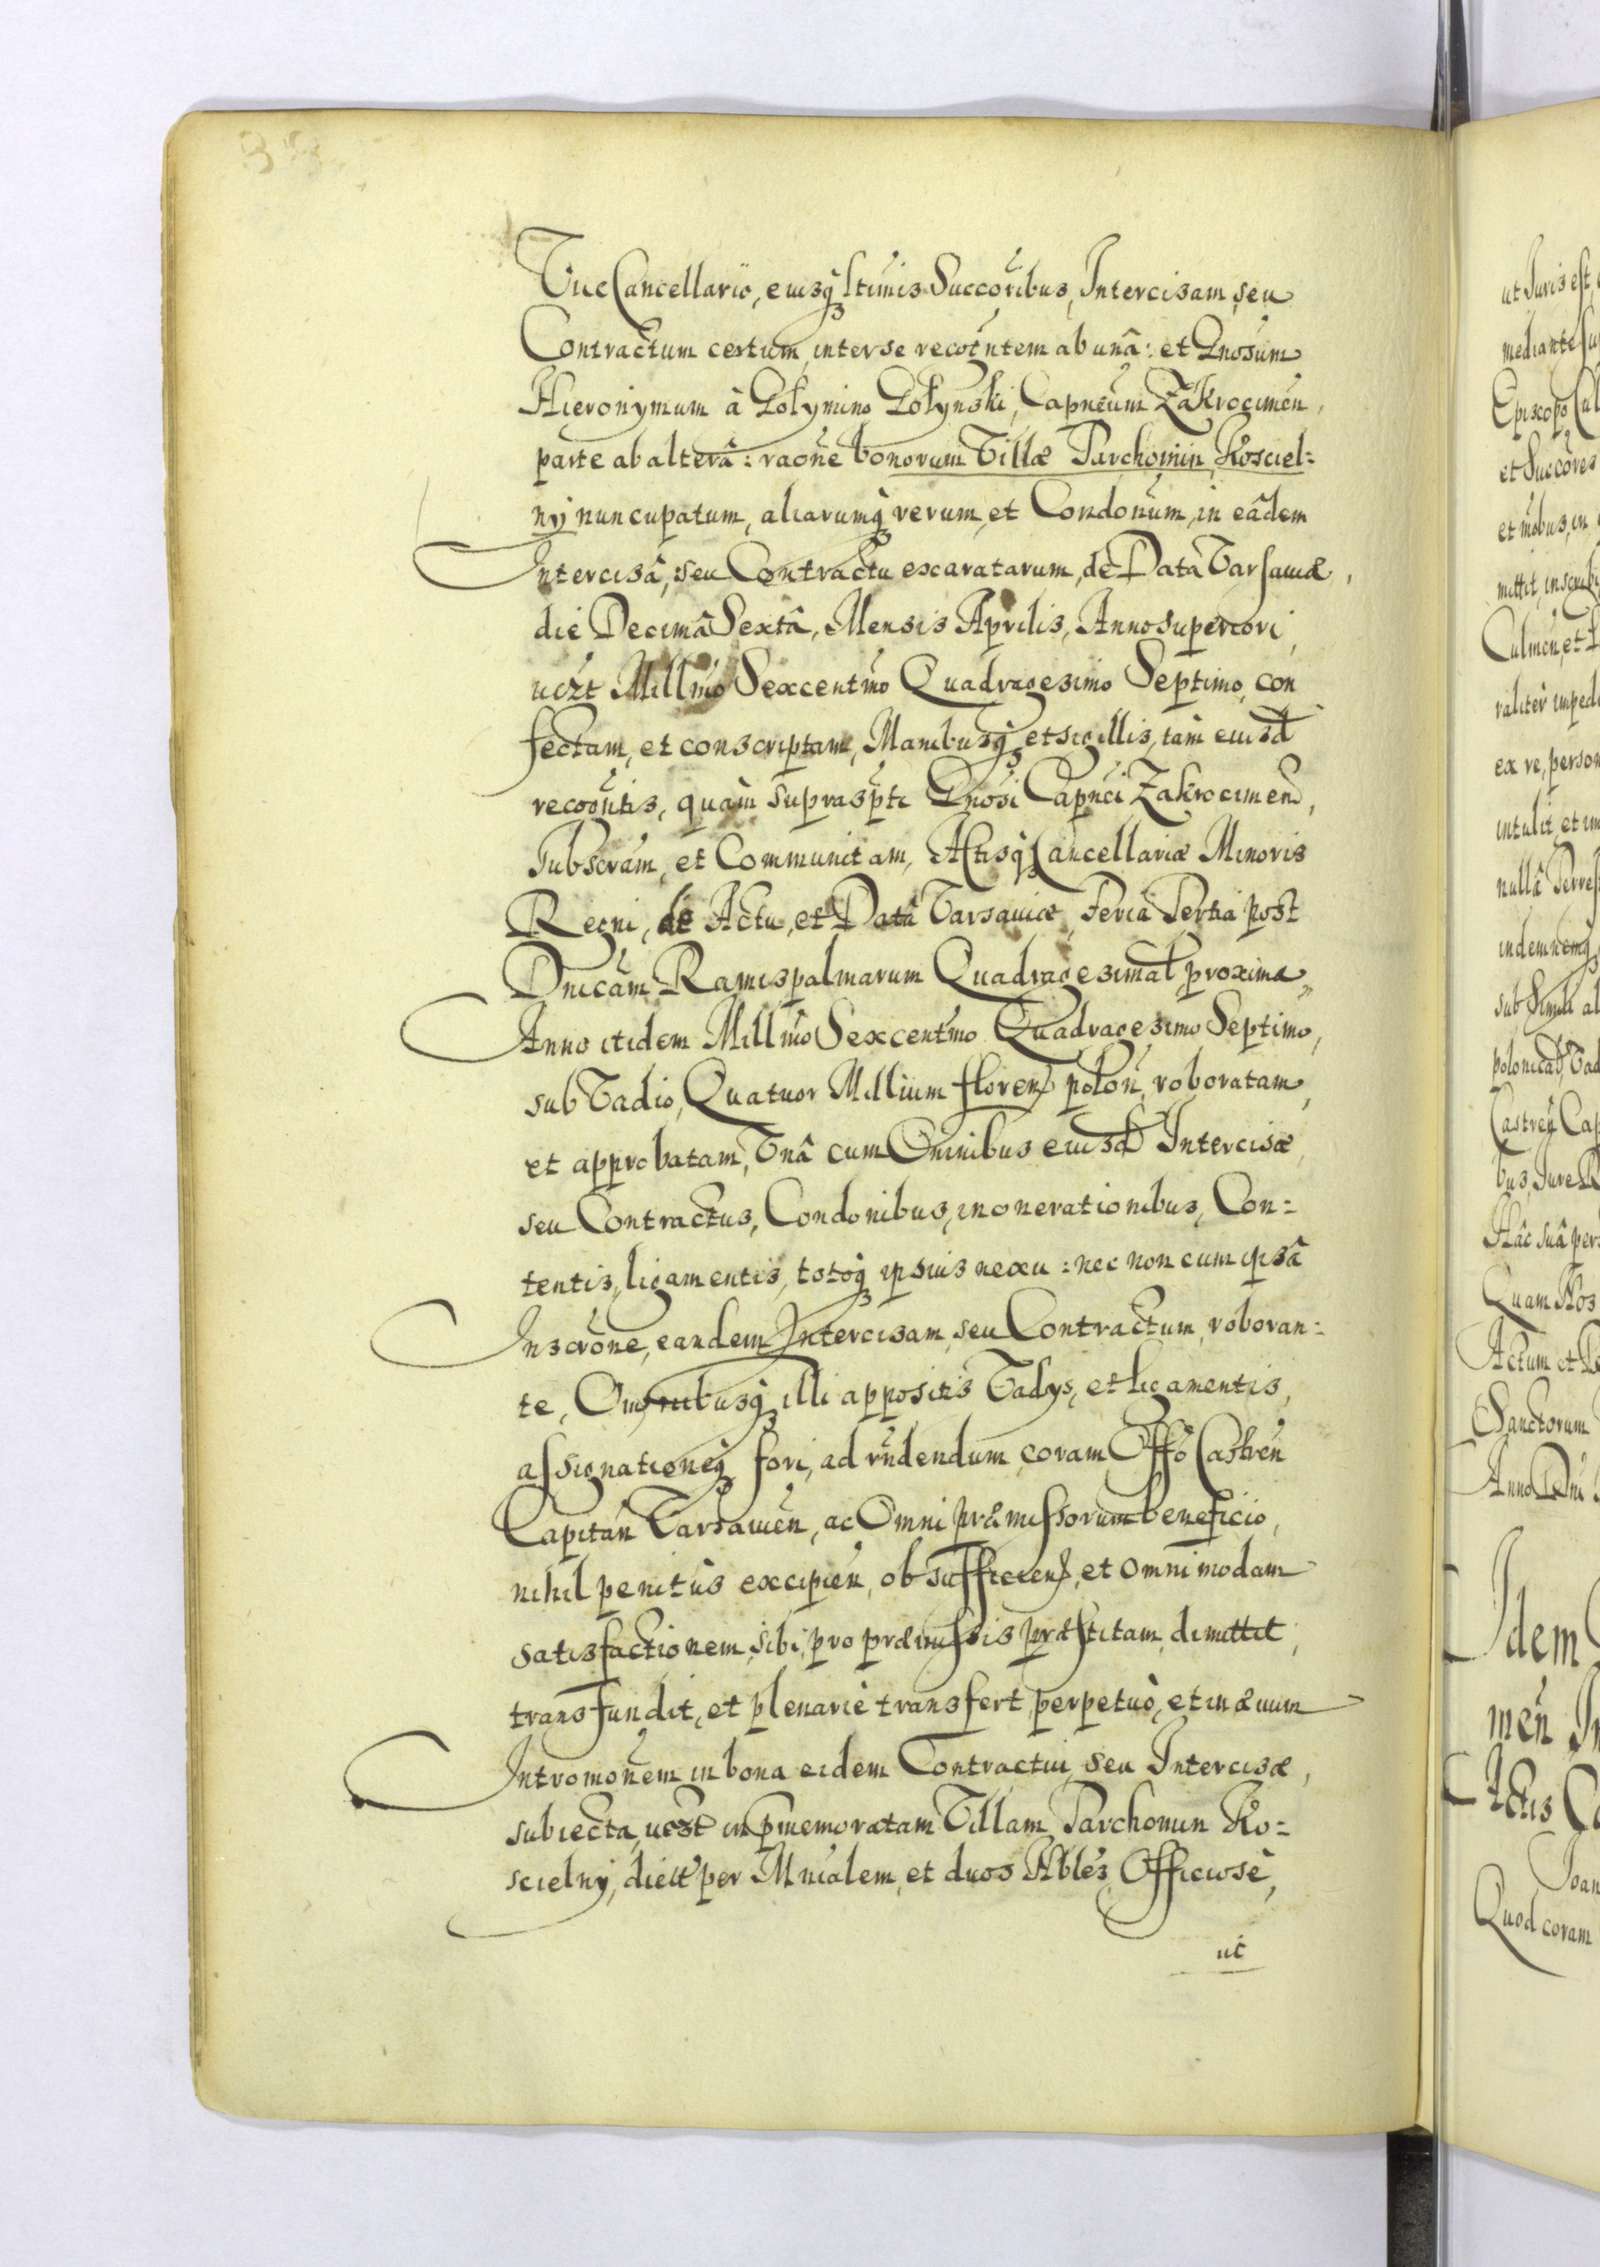 ViceCancellario, eiusq ltimis Succoribus, Intercisam, seu
Contractum certum, inter se recogntem ab unâ: et Gnosum
Hieronymum à Gołymino Gołynski, Capneum Zakrocimen,
parte ab alterâ: raone bonorum Villæ Parchomin Kosciel:
ny nuncupatum, aliarumq rerum, et Condonum, in eâdem
Intercisâ, seu Contractu exaratarum, de Data Varsauiæ,
die Decimâ Sextâ, Mensis Aprilis, Anno superiori,
uczt Millmo Sexcentmo Quadragesimo Septimo, con
fectam, et conscriptam, Manibusq et sigillis, tàm eiusd
recogntis, quàm suprasptı Gnosi Capnei Zakrocimen,
Subscram, et Communitam, Actisq Cancellariæ Minoris
Regni, de Actu, et Datâ Varsauiæ, feria Tertia post
Dnicam Ramispalmarum Quadragesimal proxima
Anno itidem Millmo Sexcentmo Quadragesimo Septimo,
sub Vadio, Quatuor Millium floren polon, roboratam,
et approbatam, Vnâ cum Omnibus eiusd Intercisæ,
seu Contractus, Condonibus, inonerationibus, Con:
tentis, ligamentis, totoq ipsius nexu: nec non cum ipsâ
Inscrone, eandem Intercisam, seu Contractum, roboran:
te, Omnibusq illi appositis Vadys, et ligamentis,
assignationeq fori, ad rndendum, coram Offo Castren
Capitan Varsauien, ac Omni præmissorum beneficio,
nihil penitùs excipien, ob sufficien, et omnimodam
satisfactionem, sibi, pro præmissis præstitam, dimittit,
transfundit, et plenariè transfert, perpetuò, et in æuum
Intromonem in bona eidem Contractui, seu Intercisæ,
subiecta, uczt in pmemoratam Villam Parchomin Ko:
scielny, dictt per Mnialem, et duos Nbles, Officiosè,
ut
ut Iuris est,
mediante
Episcopo Cul
et Succores
et mobus, in
mittit, inscribi
Culmen, et
raliter imped
ex re, person
intulit, et im
nullâ Terres
indemnemq
sub simili al
polonical, Vad
Castren Cap
bus, Iure
Hâc suâ per
Quam Nos
Actum et
Sanctorum
Anno Dni
Idem
men In
Actis Ca
Ioan
Quod coram